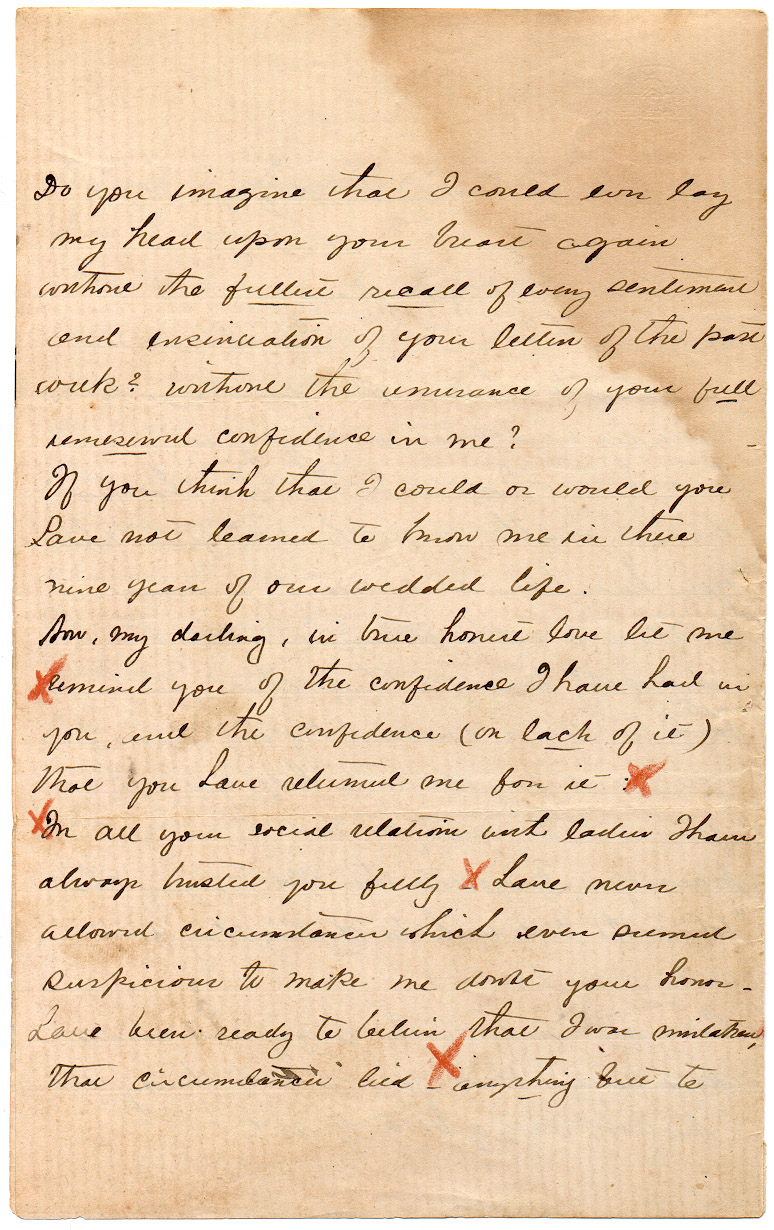 Do you imagine that I could ever lay
my head upon your breast again
without the fullest recall of every sentiment
and insinuation of your letters of the past
week? without the assurance of your full
unreserved confidence in me?
If you think that I could or would you
have not learned to know me in these
nine years of our wedded life.
Now, my darling, in true honest love let me
remind you of the confidence I have had in
you, and the confidence (or lack of it)
that you have returned me for it.
In all your social relations with ladies I have
always trusted you fully - have never
allowed circumstances which even seemed
suspicious to make me doubt your honor -
have been ready to believe that I was mistaken,
that circumstances lied - anything but to